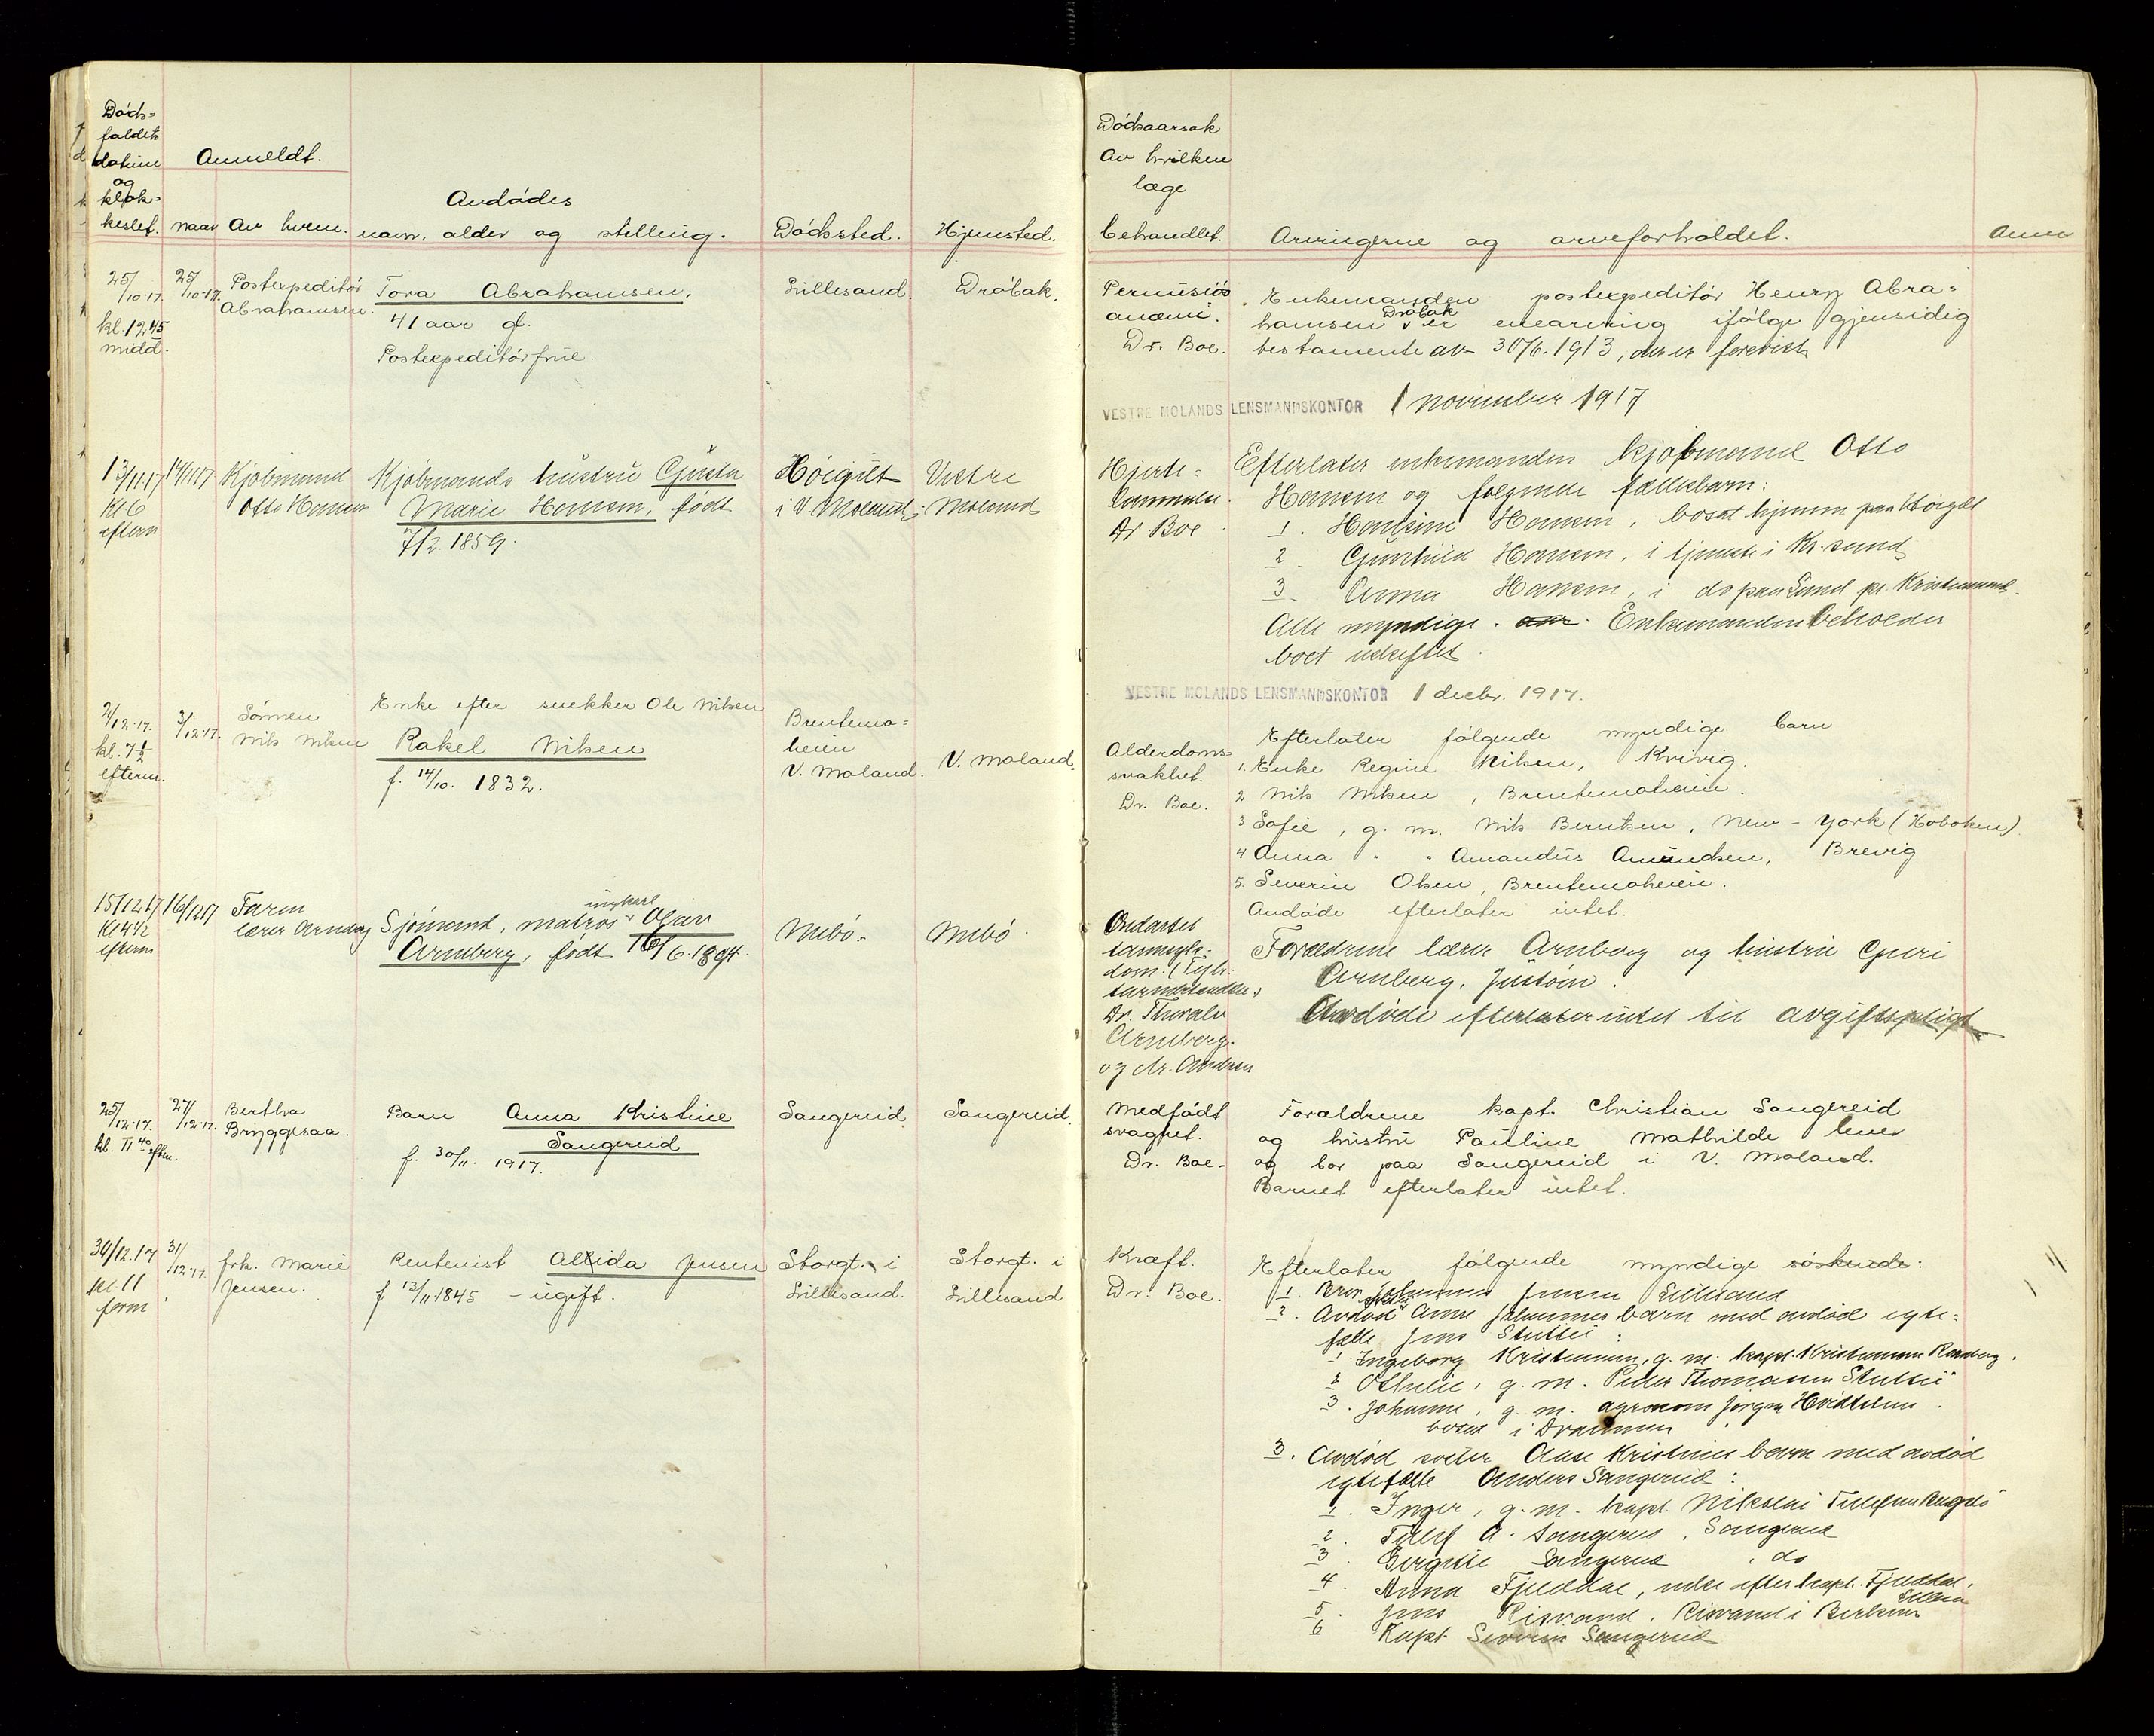 Döds=
faldets
datum
og
klok=
keslet.
Anmeldt.
naar
Av hvem.
Avdödes
navn, alder og stilling.
Dödssted.
Hjemsted.
Dödsaarsak
Av hvilken
læge
behandlet.
Arvingerne og arveforholdet.
Anm
25/10-17.
kl. 12 45
midd.
25/10-17.
Postexpeditör
Abrahamsen.
Tora Abrahamsen,
41 aar gl.
Postexpeditörfrue.
Lillesand.
Dröbak.
Perniciös
anæmi.
Dr. Boe.
Enkemanden postexpeditör Henry Abra=
Dröbak
hamsen er enearving ifölge gjensidig
testamente av 30/6. 1913, der er forevist
VESTRE MOLANDS LENSMANDSKONTOR 1 november 1917
13/11 17
Kl 6
eftern
14/11 17
Kjöbmand
Otto Hansen
Kjöbmands hustru Gusta
Marie Hansen, födt
7/2. 1859.
Höigilt
i V. Moland
Vestre
Moland
Hjerte=
lammelse.
Dr Boe
Efterlater enkemanden kjöbmand Otto
Hansen og følgende fællesbarn:
1. Hansine Hansen, bosat hjemme paa Höigilt
2 Gunhild Hansen, i tjeneste i Kr.sand
3 Anna Hansen, i do paa Lund pr. Kristianssand.
Alle myndige. Enkemanden beholder
boet uskiftet.
VESTRE MOLANDS LENSMANDSKONTOR 1 decbr. 1917.
2/12-17.
kl. 7 1/2
efterm.
3/12-17.
Sönnen
Nils Nilsen
Enke efter snekker Ole Nilsen
Rakel Nilsen
f. 14/10. 1832.
Brentemo=
heien
V. Moland.
V. Moland.
Alderdoms=
svakhet.
Dr. Boe.
Efterlater fölgende myndige barn
1. Enke Regine Nilsen, Kvivig.
2 Nils Nilsen, Brentemoheien.
3 Sofie, g. m. Nils Berntsen, New-York (Hoboken)
4 Anna " " Amandus Amundsen, Brevig
5. Severin Olsen, Brentemoheien.
Avdöde efterlater intet.
15/12 17
Kl 4 1/2
efterm
16/12 17
Farm
lærer Arnberg
ungkarl
Sjömand, matros Olav
Arnberg, födt 16/6. 1894.
Nebö.
Nebö.
Ondartet
tarmsyk=
dom.
Dr. Thoralv
Arnberg.
og dr. Andersen
Forældrene lærer Arnberg og hustru Guri
Arnberg, Justöen.
Avdöde efterlater intet til avgiftspligt
25/12-17.
kl. 11 40 eftm.
27/12-17.
Bertha
Bryggesaa.
Barn Anna Kristine
Sangereid
f. 30/11. 1917.
Sangereid
Sangereid.
Medfödt
svaghet.
Dr. Boe.
Forældrene kapt. Christian Sangereid
og hustru Pauline Mathilde lever
og bor paa Sangereid i V. Moland.
Barnet efterlater intet.
30/12. 17
kl 11
form
31/12-17.
frk. Marie
Jensen.
Rentenist Allida Jensen
f 13/11-1845 - ugift.
Storgt. i
Lillesand.
Storgt. i
Lillesand
Kræft.
Dr. Boe.
Efterlater fölgende myndige söskende:
1 Bror Johannes Jensen Lillesand
2. Avdöd söster Anne Johannes barn med avdöd egte=
fælle Jens :
1. Ingeborg Kristiansen, g. m. kapt. Kristiansen
2 Othilie, g. m. Peder Thomassen
3. Johanne, g. m. agronom Jörgen
bosat i Drammen
3. Avdöd söster Aase Kristines barn med avdöd
egtefælle Anders Sangereid:
1. Inger, g. m. kapt. Nikolai Tellefsen
2. Tellef A. Sangereid, Sangereid
3. Birgitte Sangereid, do
4. Anna Fjeldal, enke efter kapt. Fjeldal,
5. Jens Risvand, Risvand i Birkenes
6 Kapt. Severin Sangereid